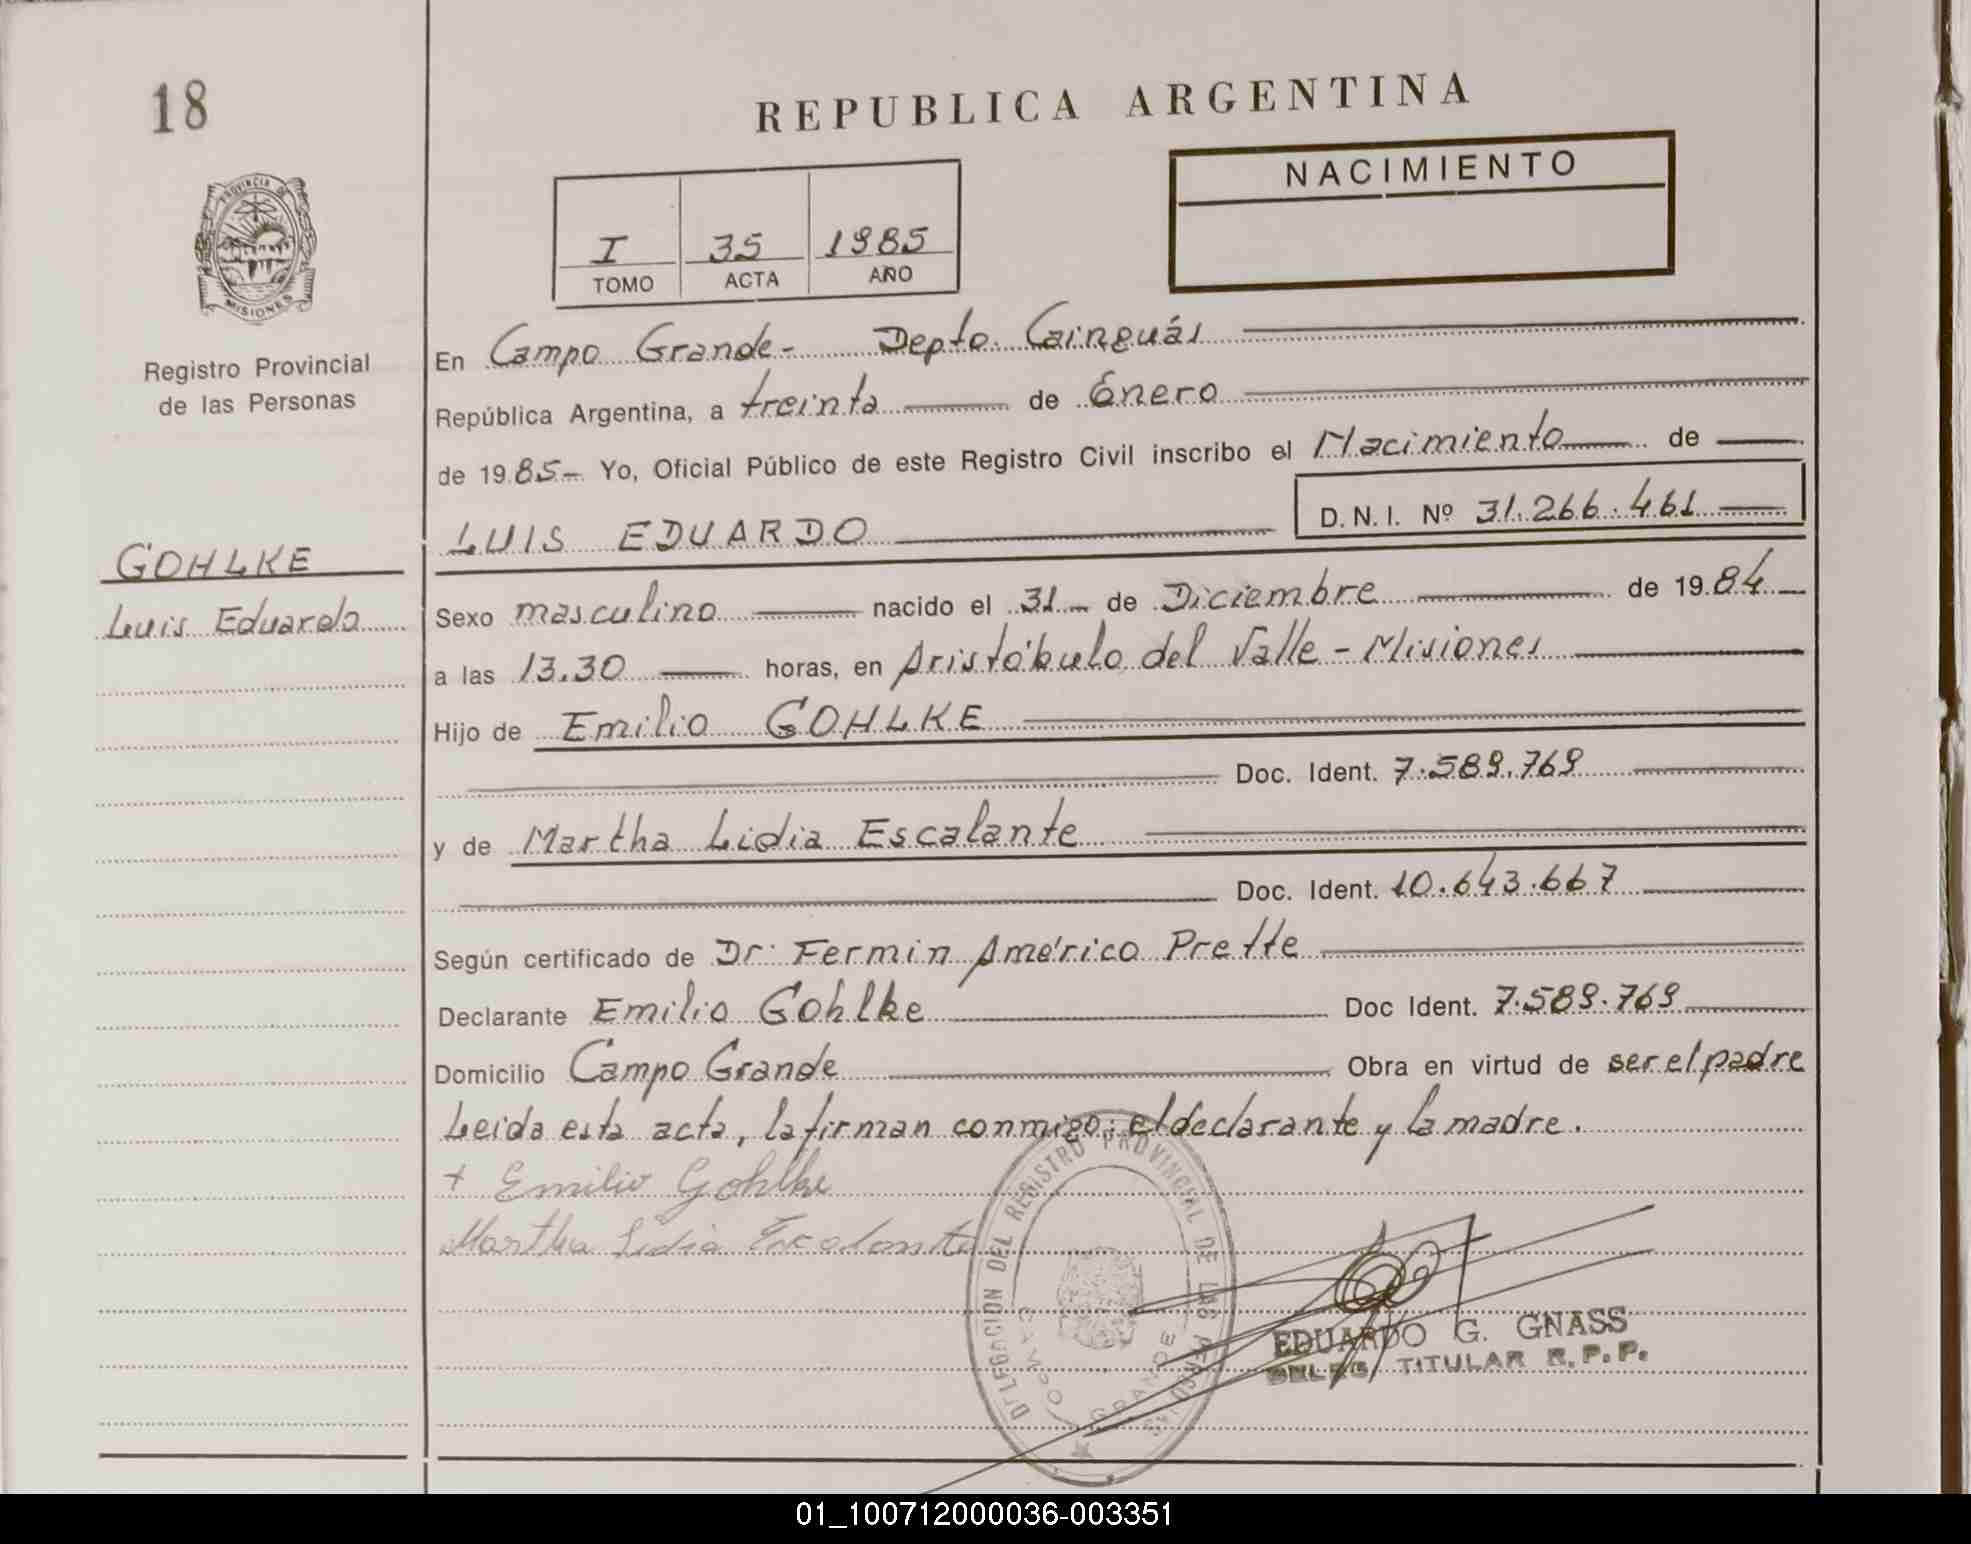 18
REPUBLICA ARGENTINA
NACIMIENTO
PROVINCIA DE
MISIONES
I 35 1985
TOMO ACTA AÑO
Registro Provincial
de las Personas
En Campo Grande- Depto. Cainguás
República Argentina, a treinta de Enero
de 1985- Yo, Oficial Público de este Registro Civil inscribo el Nacimiento de
LUIS EDUARDO D.N.I. Nº 31.266.461
GOHLKE
Luis Eduardo
Sexo masculino nacido el 31 de Diciembre de 1984
a las 13.30 horas, en Aristóbulo del Valle - Misiones
Hijo de Emilio GOHLKE
Doc. Ident. 7.589.769
y de Martha Lidia Escalante
Doc. Ident. 10.643.667
Según certificado de Dr. Fermin Américo Prette
Declarante Emilio Gohlke Doc Ident. 7.589.769
Domicilio Campo Grande Obra en virtud de ser el padre
Leida esta acta, la firman conmigo: el declarante y la madre.
+ Emilio Gohlke
Martha Lidia Escalante
DELEGACION DEL REGISTRO PROVINCIAL DE LAS PERSONAS
CAMPO GRANDE
EDUARDO G. GNASS
DELEG. TITULAR R.P.P.
01_100712000036-003351